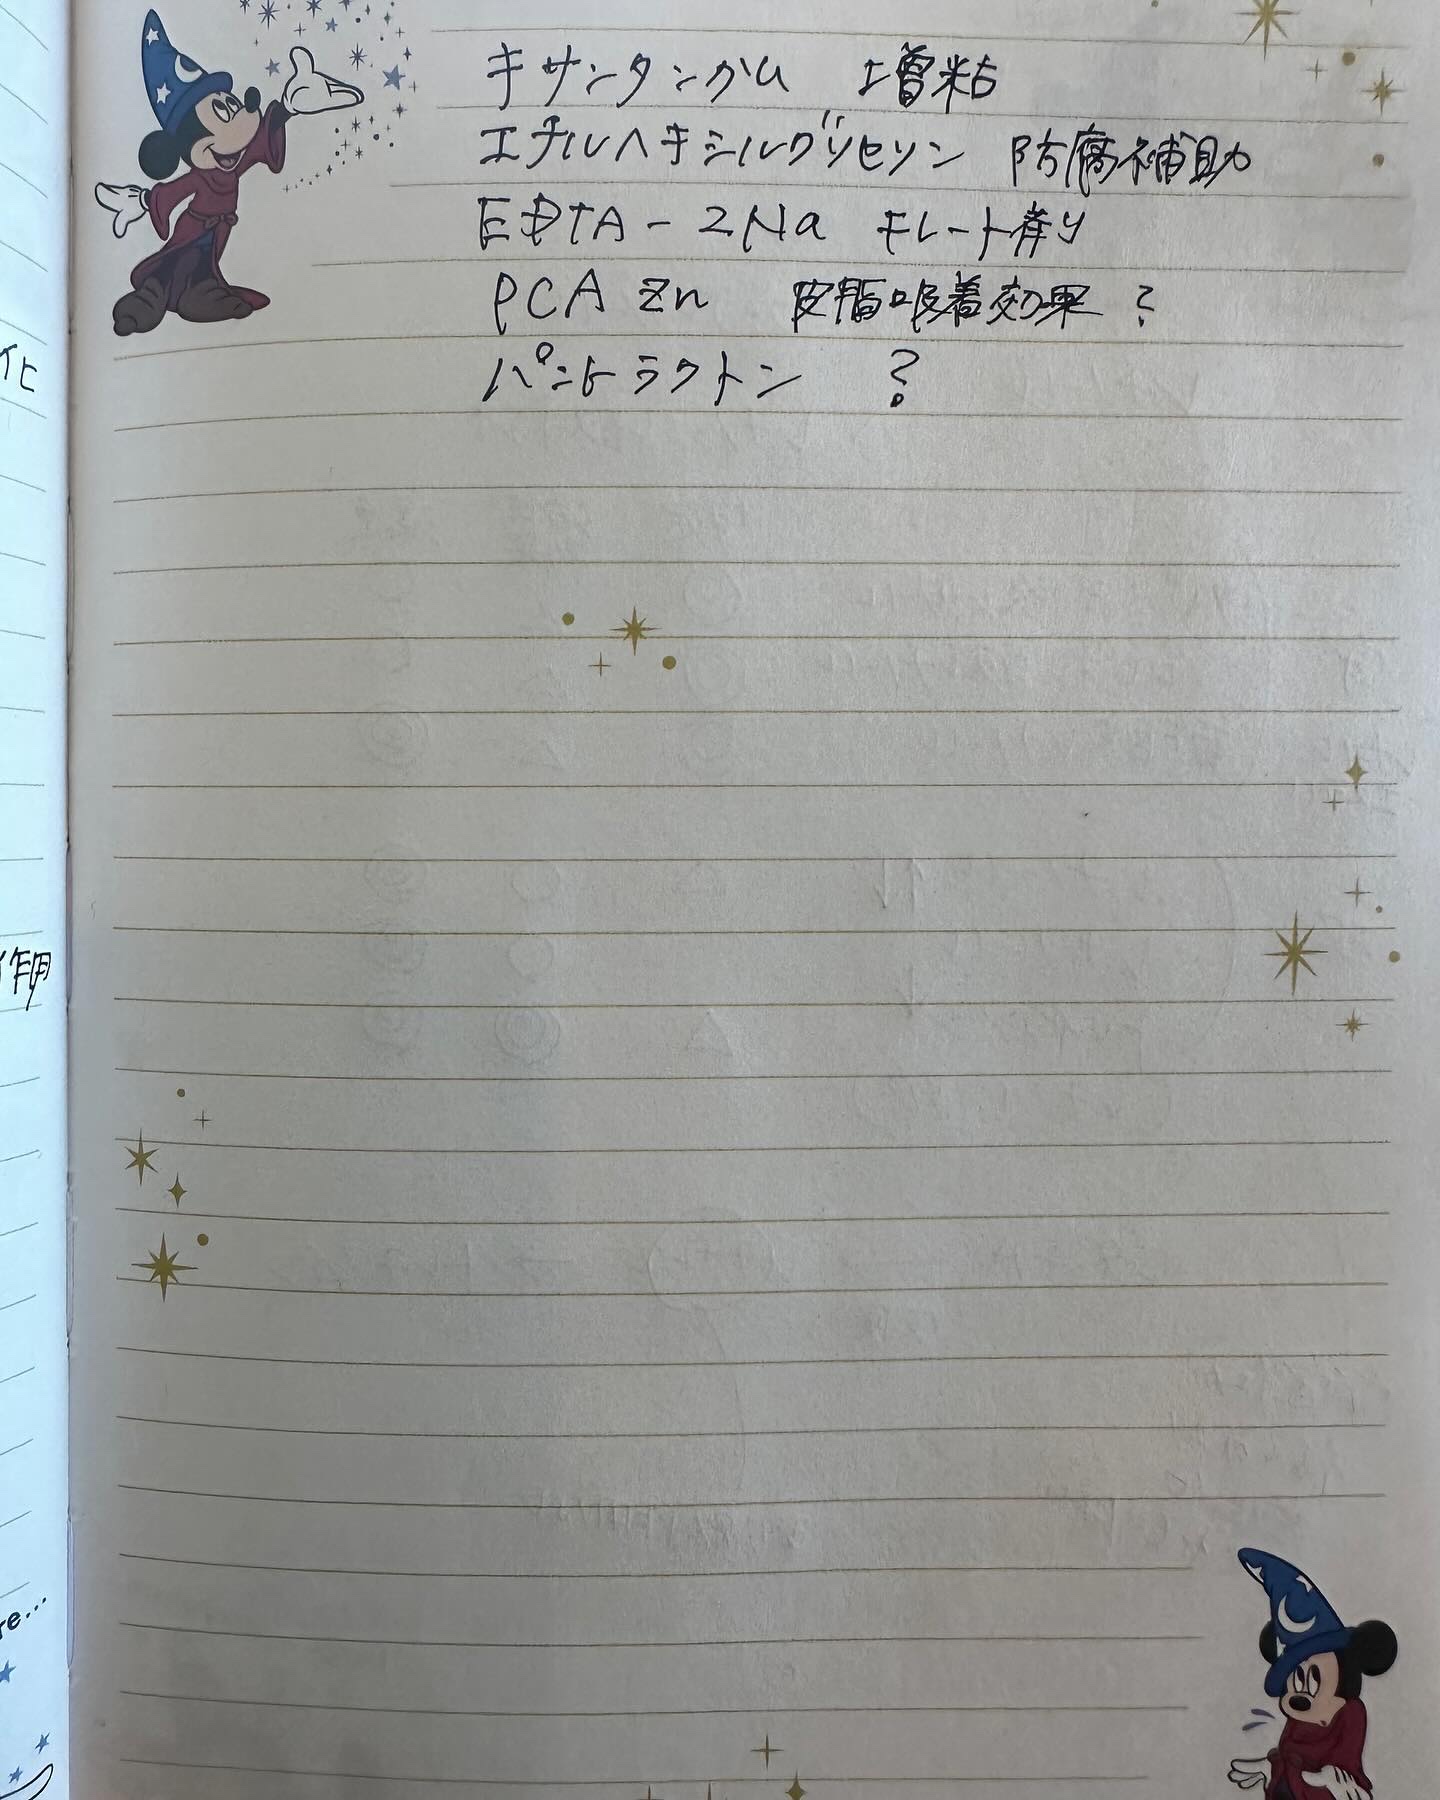 キサンタンガム 増粘
エチルヘキシルグリセリン 防腐補助
EDTA-2Na キレート剤
PCA Zn 皮脂吸着効果?
化
パントラクトン ?
作用
re...